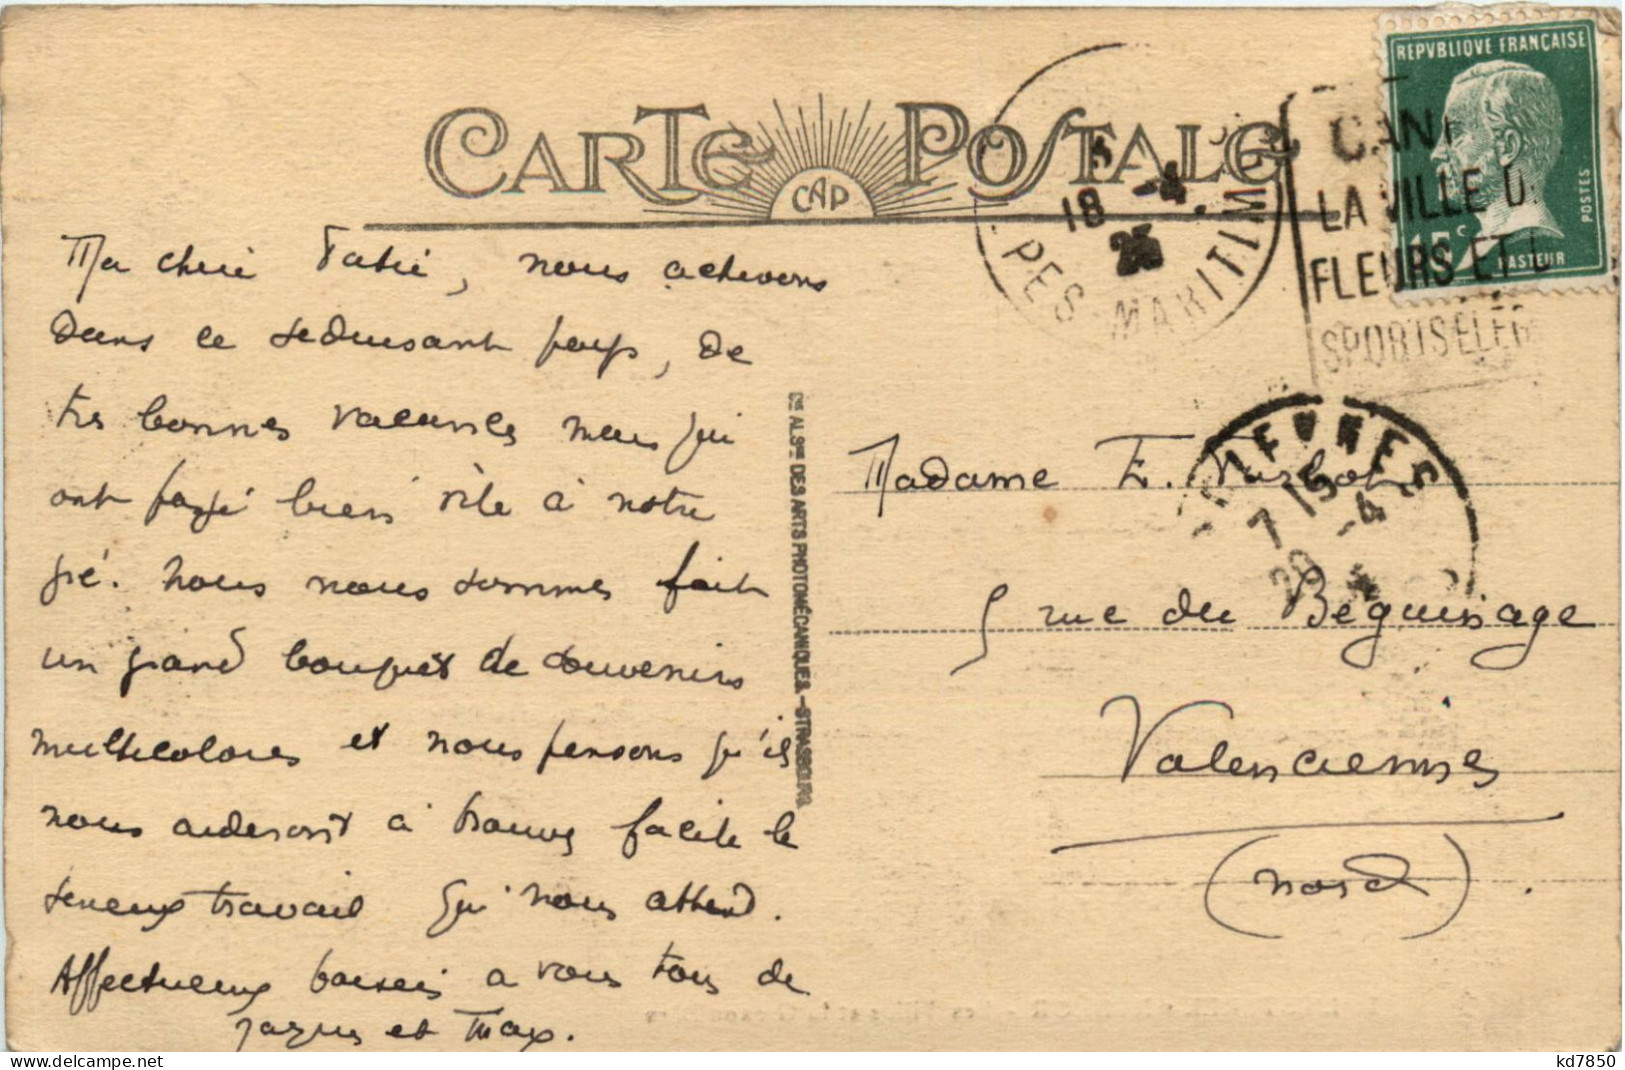 CARTE POSTALE
CAP
REPVBLIQVE FRANÇAISE
POSTES
15c
PASTEUR
18 -4
25
PES MARITIM
CAN
LA VILLE D
FLEURS ET
SPORTS ELEG
Ma chère Tatie, nous achevons
dans ce séduisant pays, de
très bonnes vacances mais qui
ont passé bien vite à notre
gré. nous nous sommes fait
un grand bouquet de souvenirs
multicolores et nous pensons qu'ils
nous aideront à trouver facile le
sérieux travail qui nous attend.
Affectueux baisers a vous tous de
Jacques et Max.
Cie ALSnne DES ARTS PHOTOMÉCANIQUES.-STRASBOURG
IENNES
7 15
20 -4
Madame E.
5 rue du Béguinage
Valenciennes
(nord).
kd7850